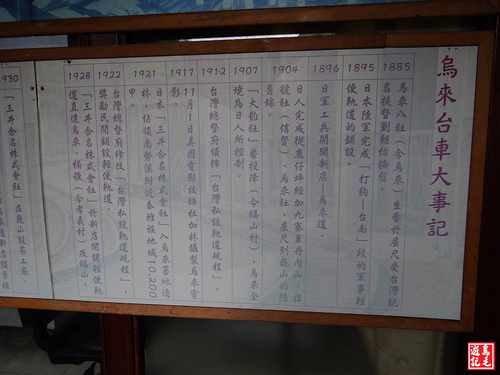 烏來台車大事記
1885
馬來八社(今烏來)生番於屈尺受台灣記
名提督劉朝祐撫慰。
1895
日本陸軍完成「打狗—台南」段的軍事輕
便軌道的鋪設。
1896
日軍工兵開闢新店—烏來道。
1904
日人完成從鹿仔坪經加九寮至丹內山、拉
號社(信賢)、烏來社、屈尺到龜山的隘
勇線。
1907
「大豹社」番投降(今福山村),烏來全
境為日人所控制
1912
台灣總督府頒佈「台灣私設軌道規程」。
1917
11月1日美國電影技師社加林攝製烏來電
影。
1921
日本「三井合名株式會社」入烏來蕃地造
林,佔領南勢溪附近泰雅族地域10,200
甲。
1922
台灣總督府修改「台灣私設軌道規程」,
獎勵民間鋪設輕便軌。
1928
「三井合名株式會社」於新店開闢輕便軌
道直達烏來、桶後(今孝義村)及福山。
930
「三井合名株式會社」在龜山設茶工廠。
烏毛
遊記